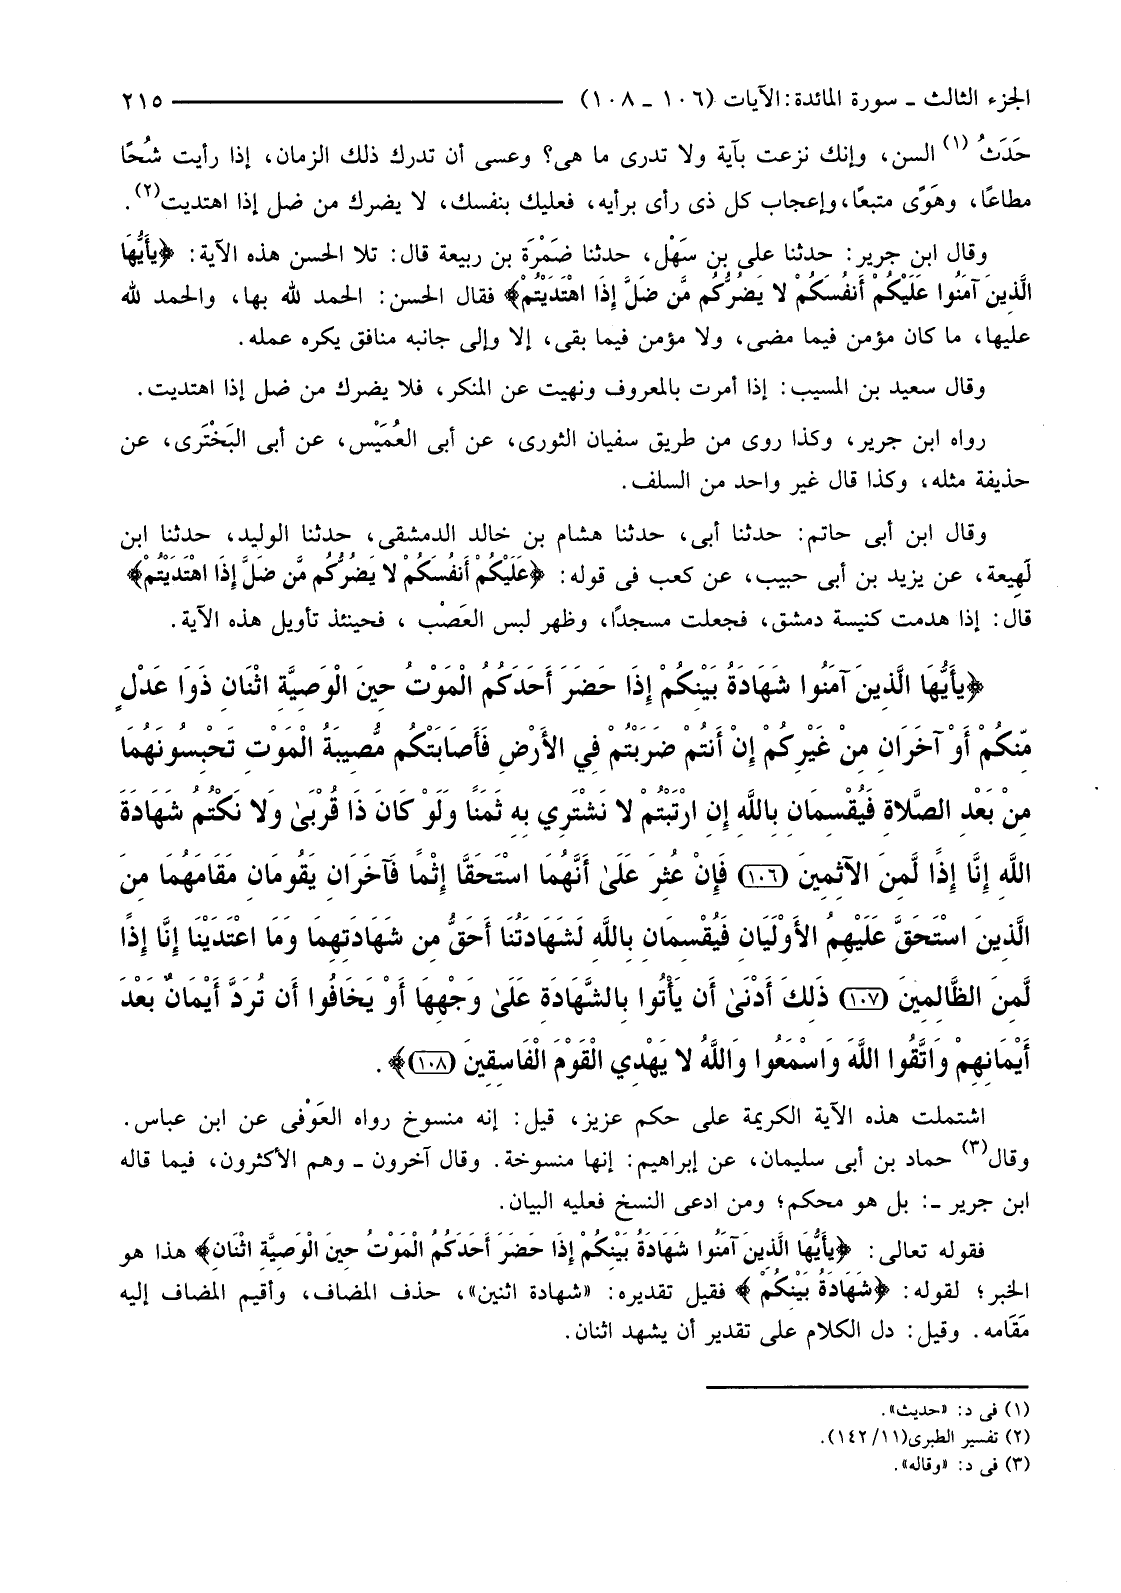 الجزء الثالث ـ سورة المائدة: الآيات (١٠٦ ـ ١٠٨) ٢١٥
حَدَثُ (١) السن، وإنك نزعت بآية ولا تدرى ما هى؟ وعسى أن تدرك ذلك الزمان، إذا رأيت شُحًا
مطاعًا، وهَوًى متبعًا، وإعجاب كل ذى رأى برأيه، فعليك بنفسك، لا يضرك من ضل إذا اهتديت(٢).
وقال ابن جرير: حدثنا على بن سَهْل، حدثنا ضَمْرَة بن ربيعة قال: تلا الحسن هذه الآية: ﴿يأَيُّهَا
الَّذِينَ آمَنُوا عَلَيْكُمْ أَنفُسَكُمْ لا يَضُرُّكُم مَّن ضَلَّ إِذَا اهْتَدَيْتُمْ﴾ فقال الحسن: الحمد لله بها، والحمد لله
عليها، ما كان مؤمن فيما مضى، ولا مؤمن فيما بقى، إلا وإلى جانبه منافق يكره عمله.
وقال سعيد بن المسيب: إذا أمرت بالمعروف ونهيت عن المنكر، فلا يضرك من ضل إذا اهتديت.
رواه ابن جرير، وكذا روى من طريق سفيان الثورى، عن أبى العُمَيْس، عن أبى البَخْتَرى، عن
حذيفة مثله، وكذا قال غير واحد من السلف.
وقال ابن أبى حاتم: حدثنا أبى، حدثنا هشام بن خالد الدمشقى، حدثنا الوليد، حدثنا ابن
لَهِيعة، عن يزيد بن أبى حبيب، عن كعب فى قوله: ﴿عَلَيْكُمْ أَنفُسَكُمْ لا يَضُرُّكُم مَّن ضَلَّ إِذَا اهْتَدَيْتُمْ﴾
قال: إذا هدمت كنيسة دمشق، فجعلت مسجدًا، وظهر لبس العَصْب ، فحينئذ تأويل هذه الآية.
﴿يأَيُّهَا الَّذِينَ آمَنُوا شَهَادَةُ بَيْنِكُمْ إِذَا حَضَرَ أَحَدَكُمُ الْمَوْتُ حِينَ الْوَصِيَّةِ اثْنَانِ ذَوَا عَدْلٍ
مِّنكُمْ أَوْ آخَرَانِ مِنْ غَيْرِكُمْ إِنْ أَنتُمْ ضَرَبْتُمْ فِي الأَرْضِ فَأَصَابَتْكُم مُّصِيبَةُ الْمَوْتِ تَحْبِسُونَهُمَا
مِنْ بَعْدِ الصَّلاةِ فَيُقْسِمَانِ بِاللَّهِ إِنِ ارْتَبْتُمْ لا نَشْتَرِي بِهِ ثَمَنًا وَلَوْ كَانَ ذَا قُرْبَىٰ وَلا نَكْتُمُ شَهَادَةَ
اللَّهِ إِنَّا إِذًا لَّمِنَ الآثِمِينَ (١٠٦) فَإِنْ عُثِرَ عَلَىٰ أَنَّهُمَا اسْتَحَقَّا إِثْمًا فَآخَرَانِ يَقُومَانِ مَقَامَهُمَا مِنَ
الَّذِينَ اسْتَحَقَّ عَلَيْهِمُ الأَوْلَيَانِ فَيُقْسِمَانِ بِاللَّهِ لَشَهَادَتُنَا أَحَقُّ مِن شَهَادَتِهِمَا وَمَا اعْتَدَيْنَا إِنَّا إِذًا
لَّمِنَ الظَّالِمِينَ (١٠٧) ذَلِكَ أَدْنَىٰ أَن يَأْتُوا بِالشَّهَادَةِ عَلَىٰ وَجْهِهَا أَوْ يَخَافُوا أَن تُرَدَّ أَيْمَانٌ بَعْدَ
أَيْمَانِهِمْ وَاتَّقُوا اللَّهَ وَاسْمَعُوا وَاللَّهُ لا يَهْدِي الْقَوْمَ الْفَاسِقِينَ (١٠٨)﴾ .
اشتملت هذه الآية الكريمة على حكم عزيز، قيل: إنه منسوخ رواه العَوْفى عن ابن عباس.
وقال(٣) حماد بن أبى سليمان، عن إبراهيم: إنها منسوخة. وقال آخرون ـ وهم الأكثرون، فيما قاله
ابن جرير ـ: بل هو محكم؛ ومن ادعى النسخ فعليه البيان.
فقوله تعالى: ﴿يأَيُّهَا الَّذِينَ آمَنُوا شَهَادَةُ بَيْنِكُمْ إِذَا حَضَرَ أَحَدَكُمُ الْمَوْتُ حِينَ الْوَصِيَّةِ اثْنَانِ﴾ هذا هو
الخبر؛ لقوله: ﴿شَهَادَةُ بَيْنِكُمْ ﴾ فقيل تقديره: «شهادة اثنين»، حذف المضاف، وأقيم المضاف إليه
مَقَامه. وقيل: دل الكلام على تقدير أن يشهد اثنان.
(١) فى د: «حديث».
(٢) تفسير الطبرى(١١/ ١٤٢).
(٣) فى د: «وقاله».